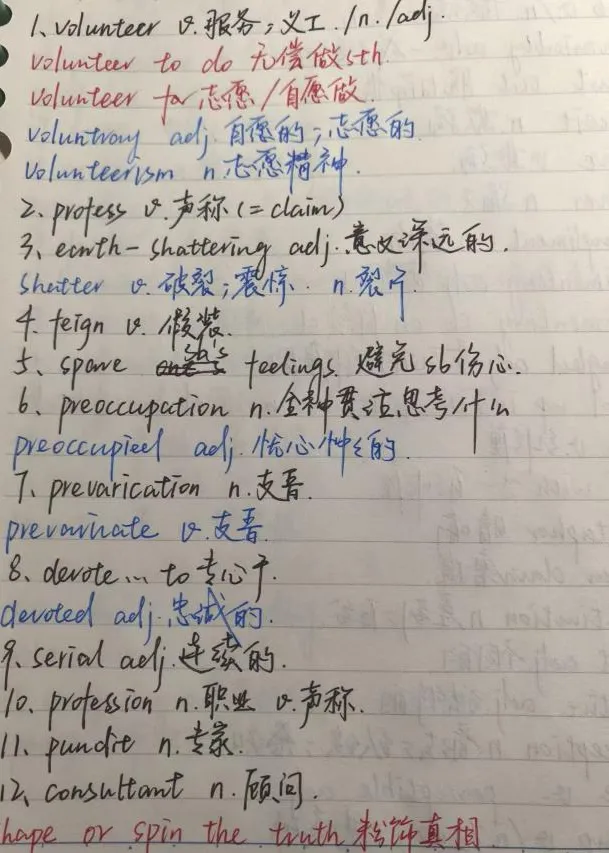 1、volunteer v.服务；义工./n./adj.
volunteer to do 无偿做sth.
volunteer for 志愿/自愿做.
voluntray adj.自愿的；志愿的.
Volunteerism n.志愿精神.
2、profess v.声称(=claim)
3、earth-shattering adj.意义深远的.
Shatter v.破裂；震惊. n.裂片
4、feign v.假装.
5、spare sb's feelings.避免sb伤心.
6、preoccupation n.全神贯注思考什么
preoccupied adj.忧心忡忡的.
7、prevarication n.支吾.
prevaricate v.支吾.
8、devote... to 专心于.
devoted adj.忠诚的.
9、serial adj.连续的.
10、profession n.职业 v.声称.
11、pundit n.专家.
12、consultant n.顾问.
hape or spin the truth 粉饰真相.